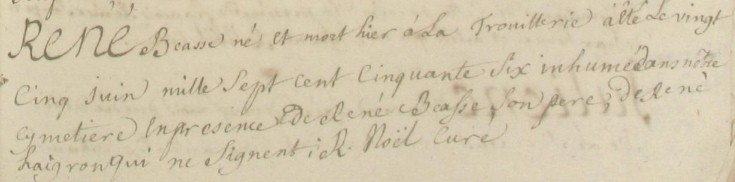 RENÉ Beasse né et mort hier à la Trouillerie a été le vingt
Cinq juin mille Sept cent Cinquante Six inhumé dans nôtre
Cymetiere Enpresence De René Beasse Son pere, De René
haigron qui ne Signent ; R. Noël Curé